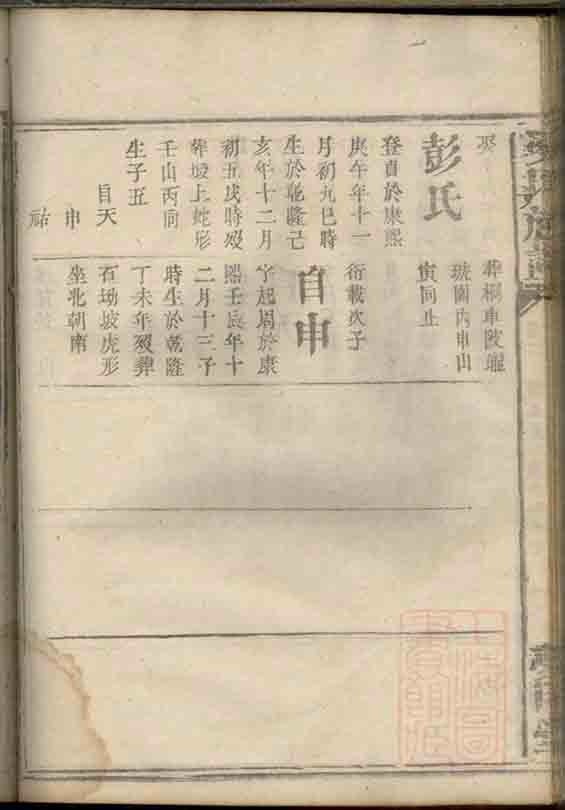 娶
彭氏
登貢於康熙
庚午年十一
月初九巳時
生於乾隆己
亥年十二月
初五戌時歿
葬坡上蛇形
壬山丙向
生子五
自天
申
祐
葬桐車陂
琥園內申山
寅向止
衍載次子
自申
字起於康
熙壬辰年十
二月十三子
時生於乾隆
丁未年歿葬
石坳坡虎形
坐北朝南
上海圖
書館藏